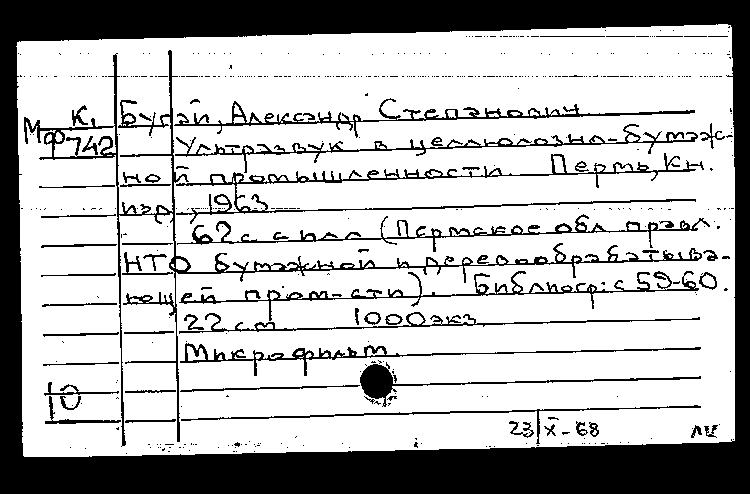 К. Бугай, Александр Степанович
Мф 742 Ультразвук в целлюлозно-бумаж-
ной промышленности. Пермь, Кн.
изд., 1963
62 с. с илл. (Пермское обл. правл.
НТО бумажной и деревообрабатыва-
ющей пром-сти). Библиогр: с 59-60.
22 см. 1000 экз.
Микрофильм.
10
23/X-68